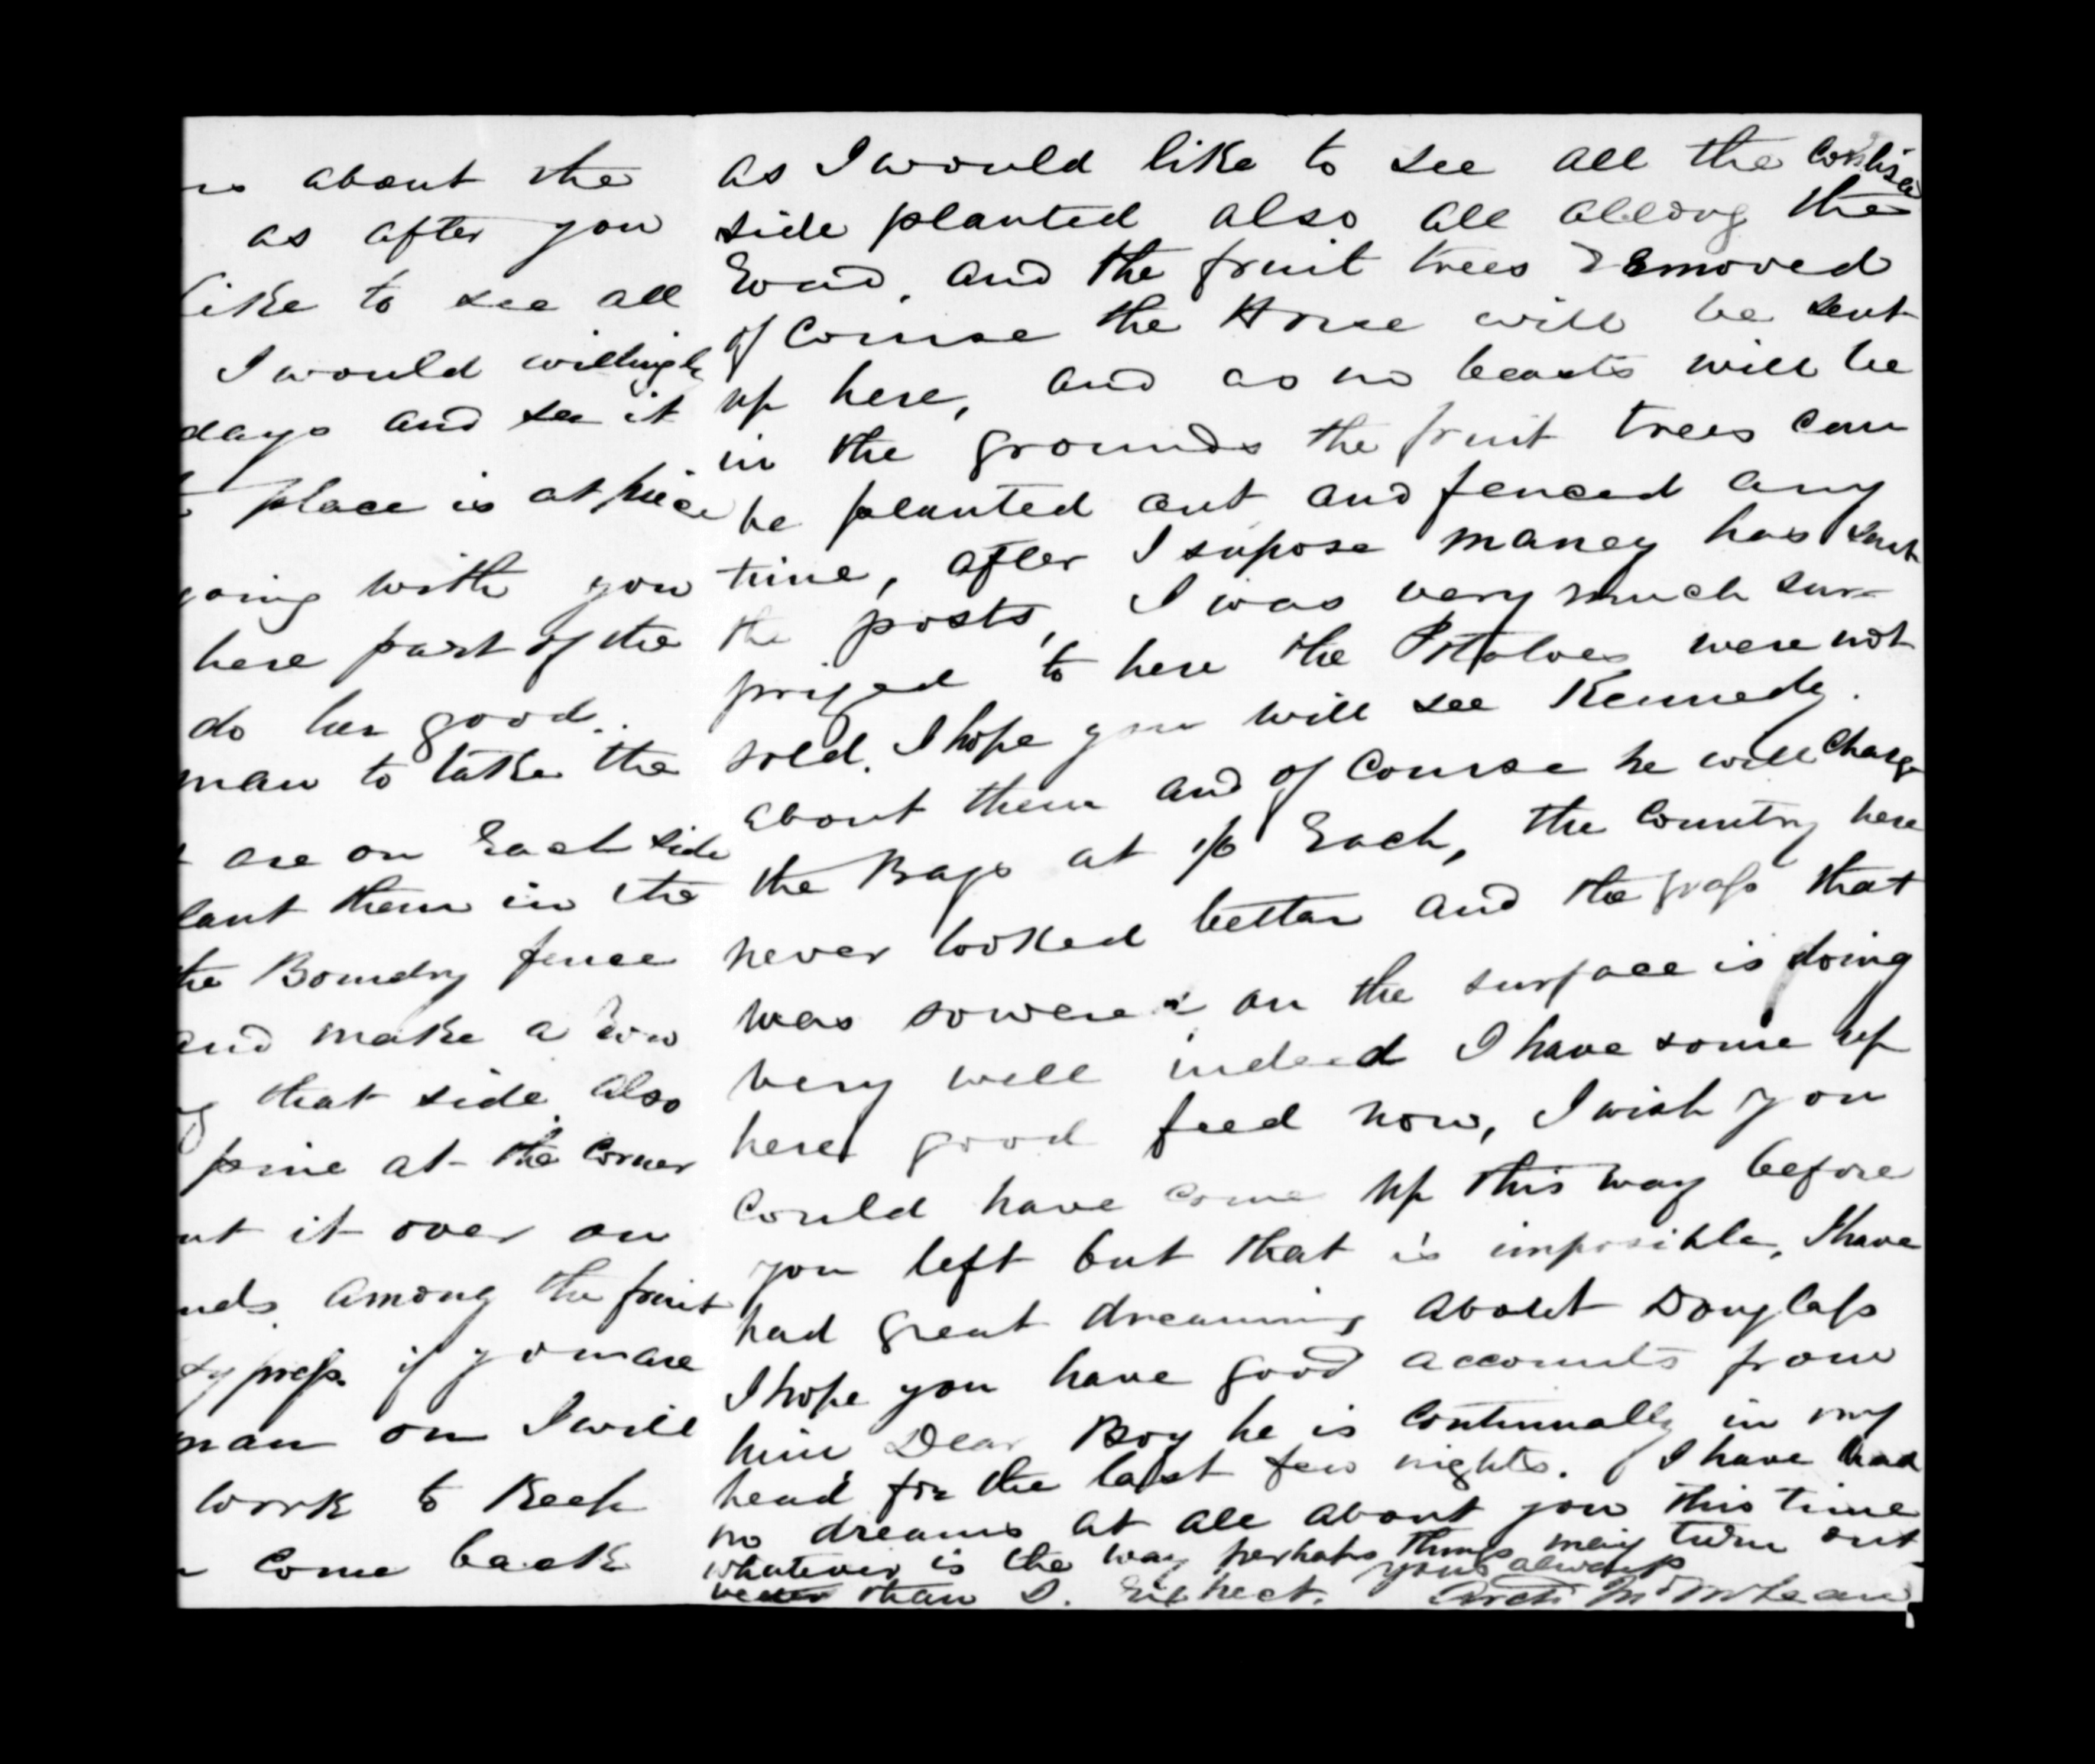 about the
as after you
like to see all
I would willingly
days and see it
place is at price
going with you
here part of the
do her good.
man to take the
are on Each side
lant them in the
the Boundry fence
and make a row
that side also
pine at the Corner
ut it over on
nds among the fruit
if you are
man on I will
work to Keep
Come back
as I would like to see all the
side planted also all allong the
Road, and the fruit trees removed
of Course the Horse will be sent
up here, and as no beasts will be
in the grounds the fruit trees can
be planted out and fenced any
time, after I supose maney has sent
the posts, I was very much sur-
prized to here the Potatoes were not
sold. I hope you will see Kennedy.
about them and of Course he will Charge
the Bags at 1/6 Each, the Country here
never looked better and the grass that
was sowered on the surface is doing
very well indeed I have some up
here good feed now, I wish you
Could have come up this way before
you left but that is imposible, I have
had great dreaming about Douglass
I hope you have good accounts from
him Dear Boy he is Continually in my
head for the last few nights. I have had
no dreams at all about you this time
whatever is the way perhaps things may turn out
better than I. Expect. yours always
Archd McLean